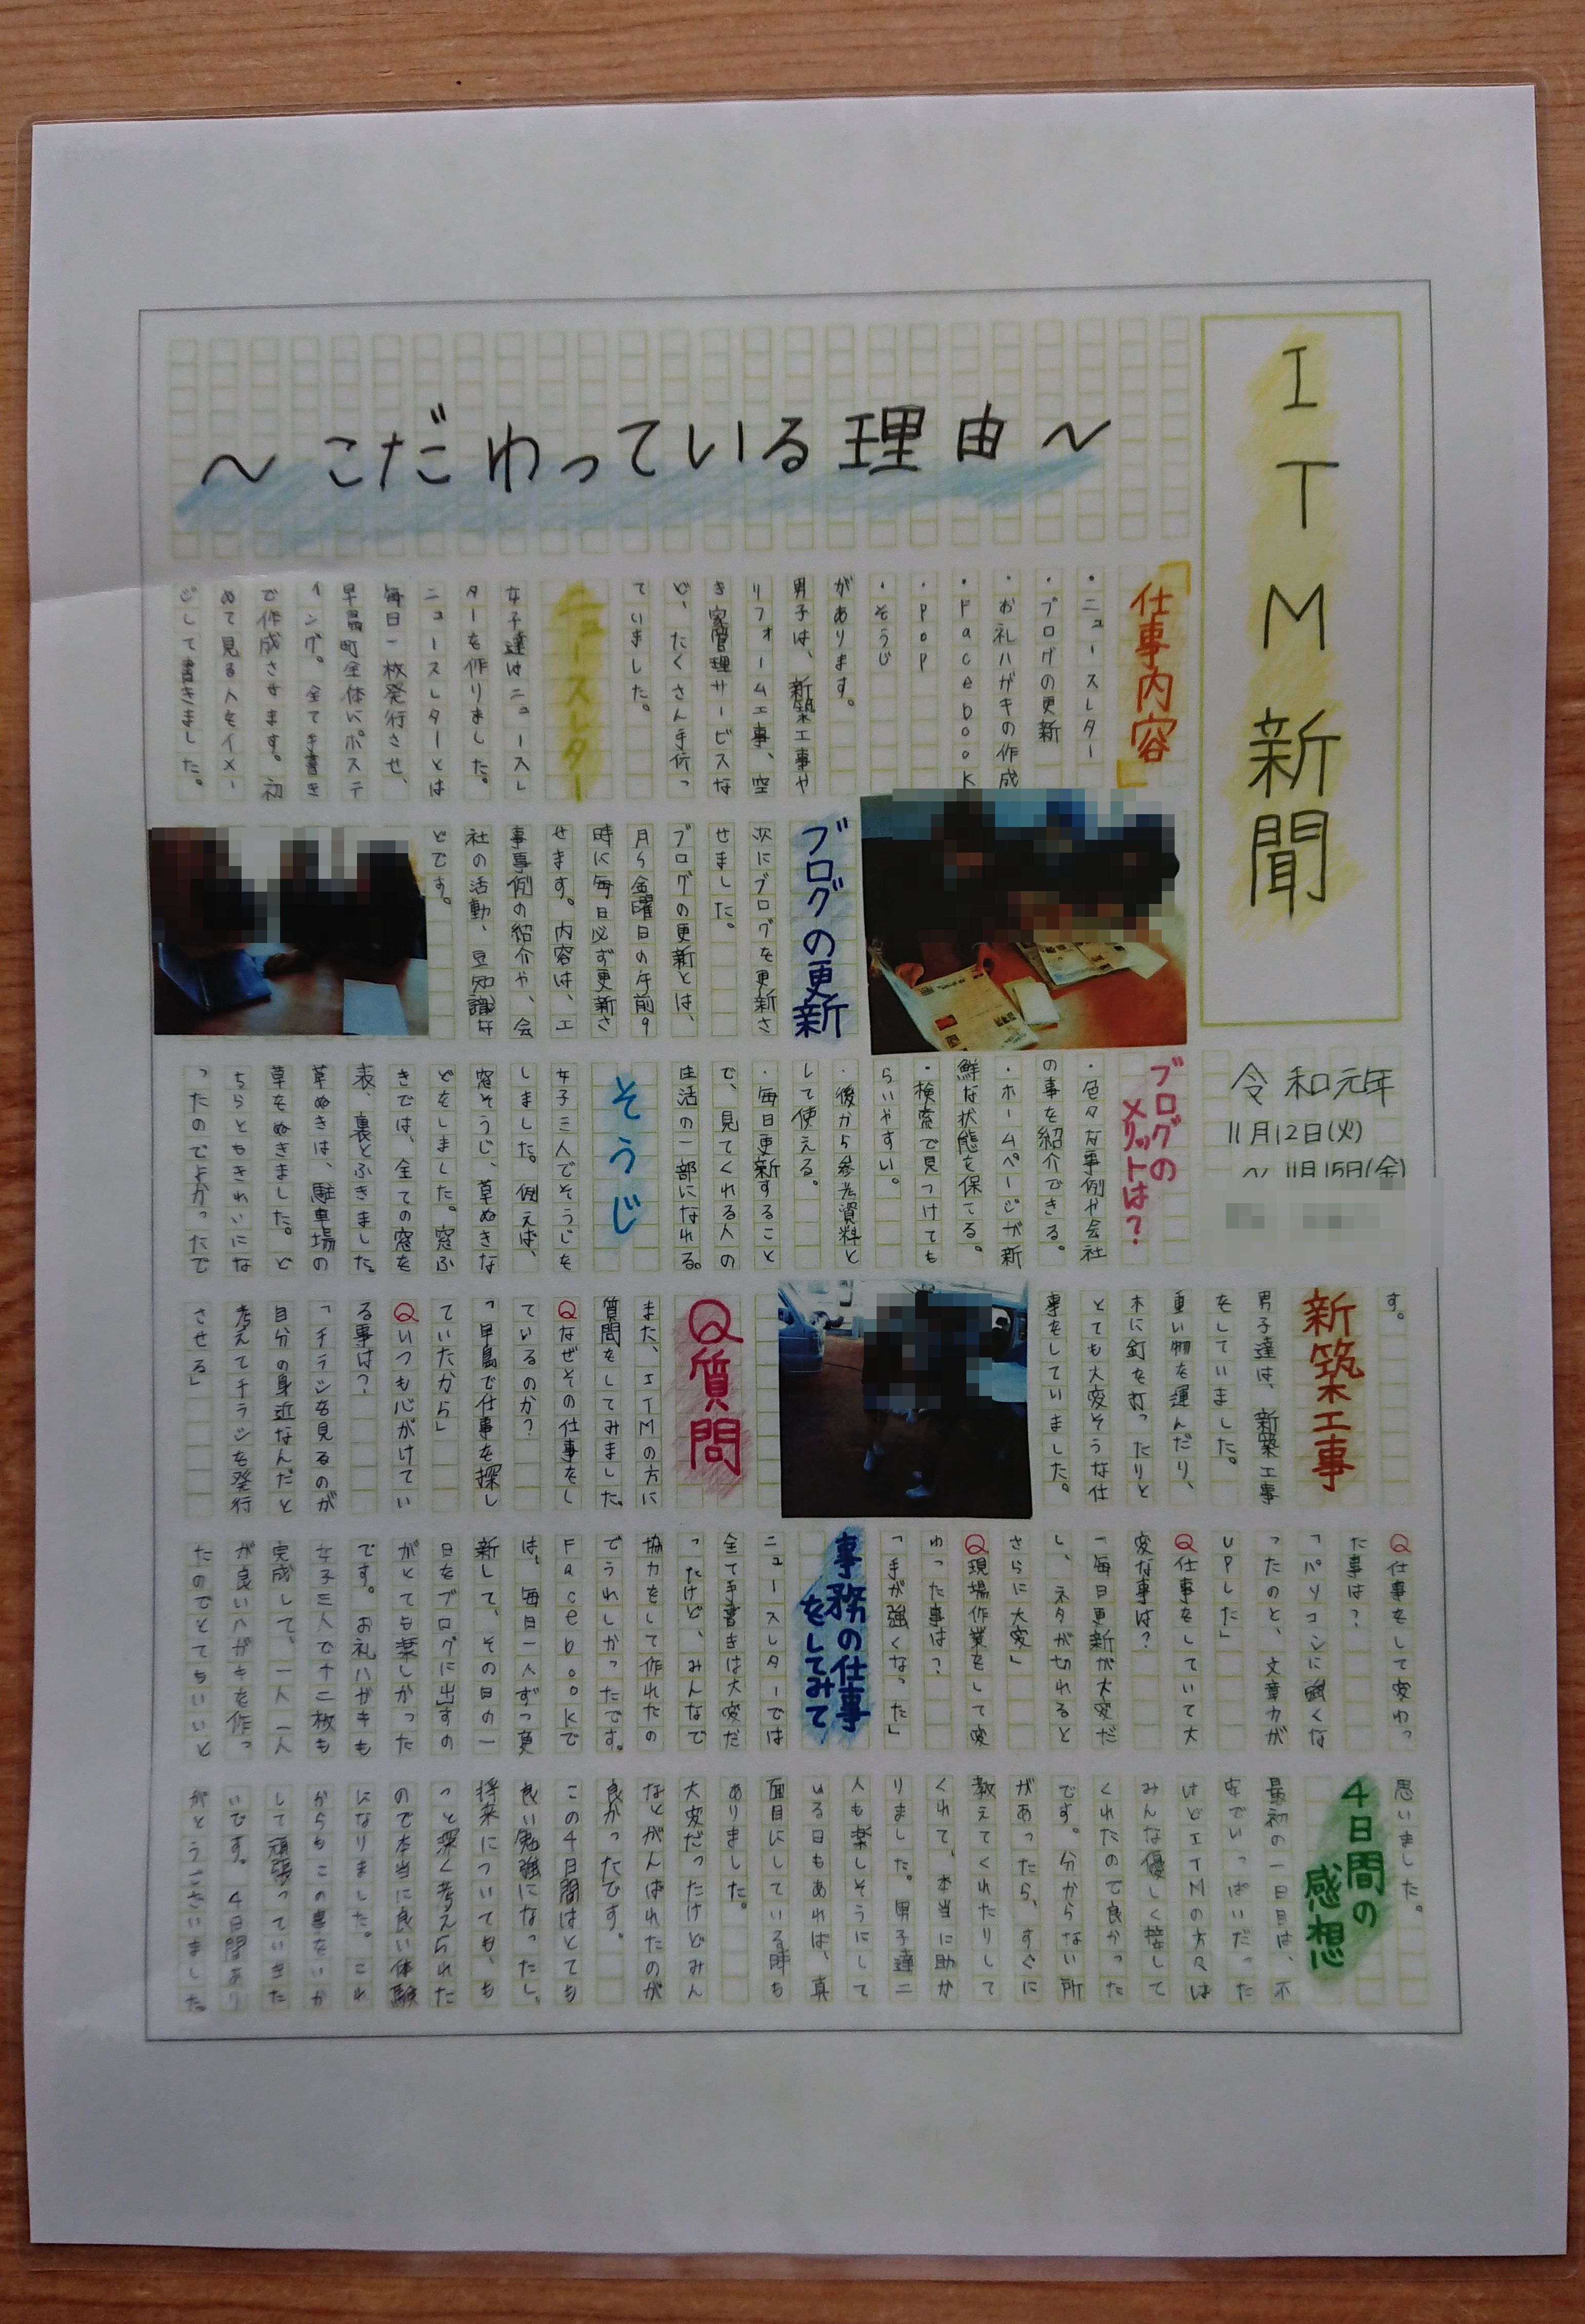 ITM新聞
～こだわっている理由～
令和元年
11月12日(火)
～11月15日(金)
「仕事内容」
・ニュースレター
・ブログの更新
・お礼ハガキの作成
・Facebook
・POP
・そうじ
があります。
男子は、新築工事や
リフォーム工事、空
き家管理サービスな
ど、たくさん手伝っ
ていました。
ニュースレター
女子達はニュースレ
ターを作りました。
ニュースレターとは
毎日一枚発行させ、
早島町全体にポステ
ィング。全て手書き
で作成さすます。初
めて見る人をイメー
ジして書きました。
ブログの更新
次にブログを更新さ
せました。
ブログの更新とは、
月から金曜日の午前9
時に毎日必ず更新さ
せます。内容は、工
事事例の紹介や、会
社の活動、豆知識な
どです。
ブログの
メリットは？
・色々な事例や会社
の事を紹介できる。
・ホームページが新
鮮な状態を保てる。
・検索で見つけても
らいやすい。
・後から参考資料と
して使える。
・毎日更新すること
で、見てくれる人の
生活の一部になれる。
そうじ
女子三人でそうじを
しました。例えば、
窓そうじ、草ぬきな
どをしました。窓ふ
きでは、全ての窓を
表、裏とふきました。
草ぬきは、駐車場の
草をぬきました。ど
ちらともきれいにな
ったのでよかったで
す。
新築工事
男子達は、新築工事
をしていました。
重い物を運んだり、
木に釘を打ったりと
とても大変そうな仕
事をしていました。
Q質問
また、ITMの方に
質問をしてみました。
Qなぜその仕事をし
ているのか？
「早島で仕事を探し
ていたから」
Qいつも心がけてい
る事は？
「チラシを見るのが
自分の身近なんだと
考えてチラシを発行
させる」
Q仕事をして変わっ
た事は？
「パソコンに強くな
ったのと、文章力が
UPした」
Q仕事をしていて大
変な事は？
「毎日更新が大変だ
し、ネタが切れると
さらに大変」
Q現場作業をして変
わった事は？
「手が強くなった」
事務の仕事
をしてみて
ニュースレターでは
全て手書きは大変だ
ったけど、みんなで
協力をして作れたの
でうれしかったです。
Facebookで
は、毎日一人ずつ更
新して、その日の一
日をブログに出すの
がとても楽しかった
です。お礼ハガキも
女子三人で十二枚も
完成して、一人一人
が良いハガキを作っ
たのでとてもいいと
思いました。
4日間の
感想
最初の一日目は、不
安でいっぱいだった
けどITMの方々は
みんな優しく接して
くれたので良かった
です。分からない所
があったら、すぐに
教えてくれたりして
くれて、本当に助か
りました。男子達二
人も楽しそうにして
いる日もあれば、真
面目にしている時も
ありました。
大変だったけどみん
ながんばれたのが
良かったです。
この4日間はとても
良い勉強になったし、
将来についても、も
っと深く考えられた
ので本当に良い体験
になりました。これ
からもこの事をいか
して頑張っていきた
いです。4日間あり
がとうございました。